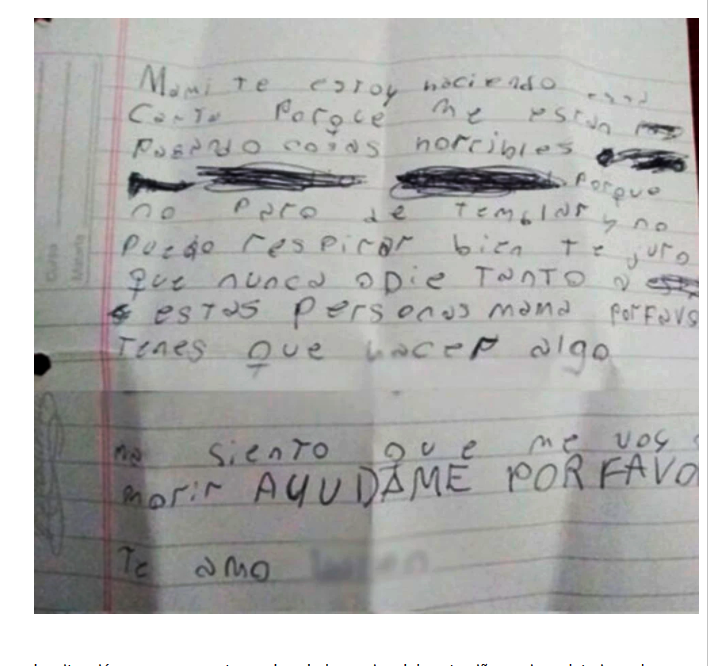 Mami te estoy haciendo esta
Carta Porque me estan
Pasando cosas horribles
Porque
no Paro de TemblAr y no
Puedo respirar bien Te juro
que nunca odie TANTO a
estas personas mama PorFavo
Tenes que hacer algo
siento que me voy
morir AYUDAME POR FAVO
Te amo